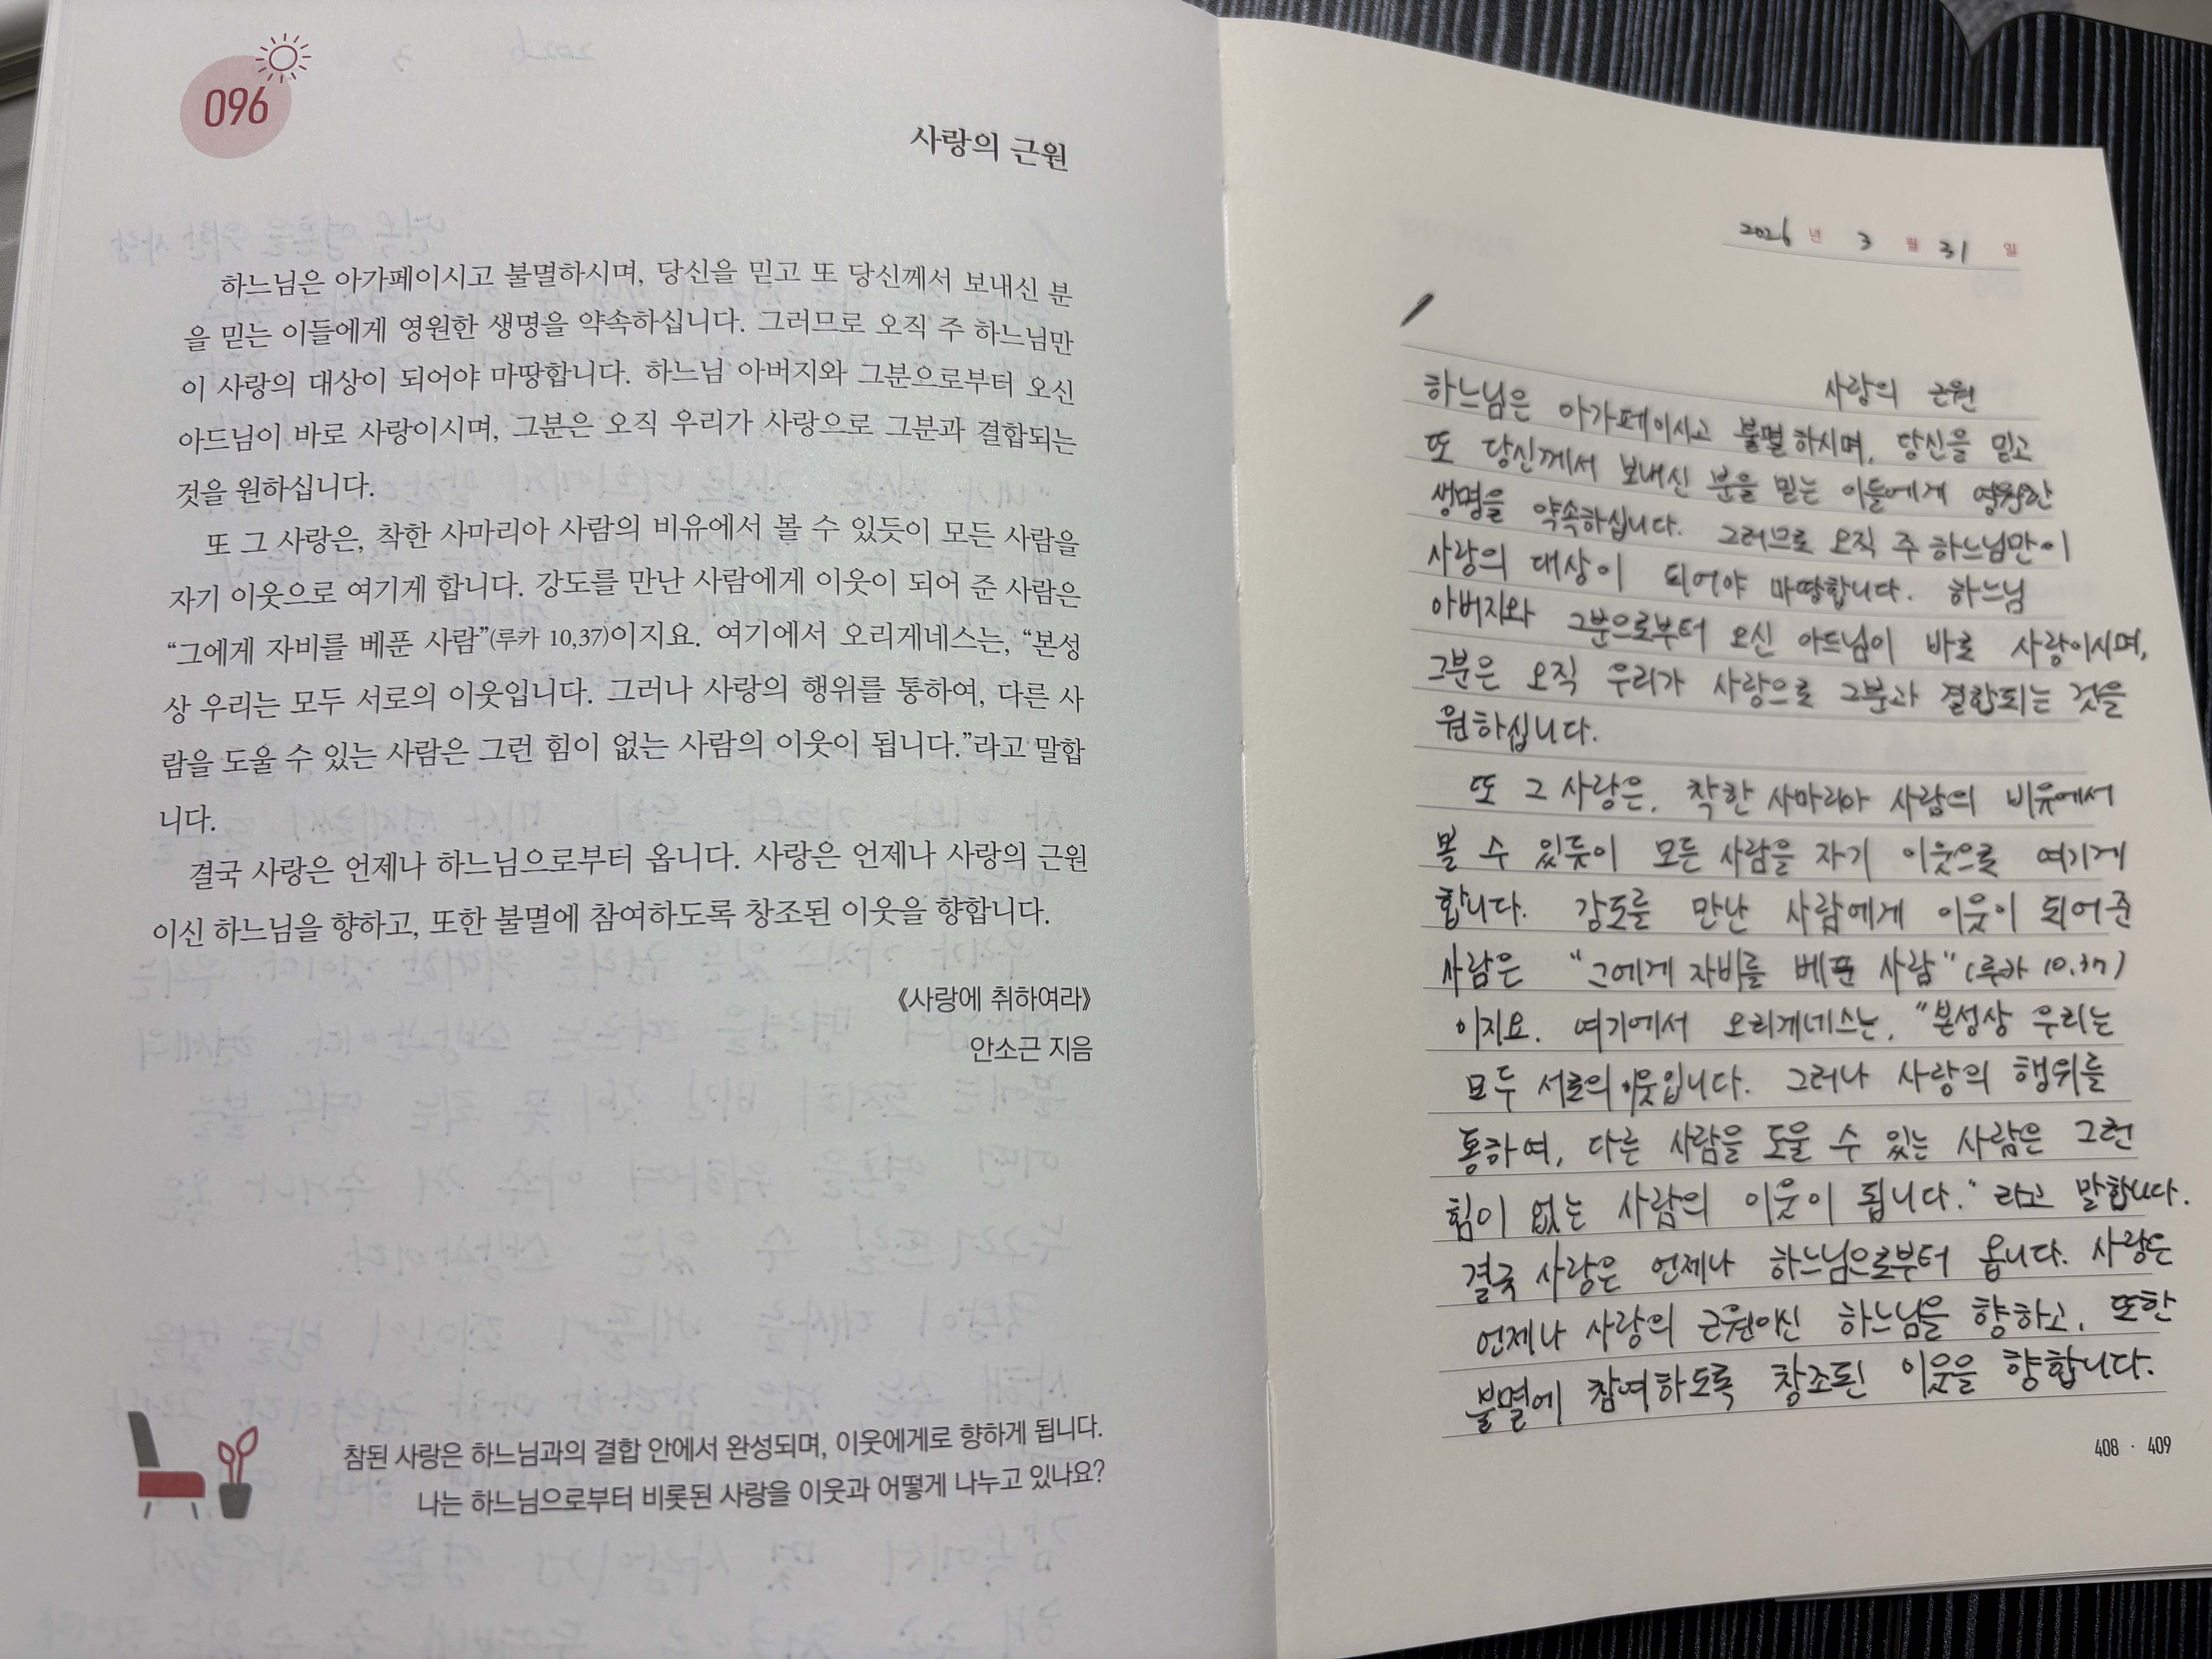 096
사랑의 근원
하느님은 아가페이시고 불멸하시며, 당신을 믿고 또 당신께서 보내신 분
을 믿는 이들에게 영원한 생명을 약속하십니다. 그러므로 오직 주 하느님만
이 사랑의 대상이 되어야 마땅합니다. 하느님 아버지와 그분으로부터 오신
아드님이 바로 사랑이시며, 그분은 오직 우리가 사랑으로 그분과 결합되는
것을 원하십니다.
또 그 사랑은, 착한 사마리아 사람의 비유에서 볼 수 있듯이 모든 사람을
자기 이웃으로 여기게 합니다. 강도를 만난 사람에게 이웃이 되어 준 사람은
“그에게 자비를 베푼 사람”(루카 10,37)이지요. 여기에서 오리게네스는, “본성
상 우리는 모두 서로의 이웃입니다. 그러나 사랑의 행위를 통하여, 다른 사
람을 도울 수 있는 사람은 그런 힘이 없는 사람의 이웃이 됩니다.”라고 말합
니다.
결국 사랑은 언제나 하느님으로부터 옵니다. 사랑은 언제나 사랑의 근원
이신 하느님을 향하고, 또한 불멸에 참여하도록 창조된 이웃을 향합니다.
《사랑에 취하여라》
안소근 지음
참된 사랑은 하느님과의 결합 안에서 완성되며, 이웃에게로 향하게 됩니다.
나는 하느님으로부터 비롯된 사랑을 이웃과 어떻게 나누고 있나요?
2026 년 3 월 31 일
사랑의 근원
하느님은 아가페이시고 불멸하시며, 당신을 믿고
또 당신께서 보내신 분을 믿는 이들에게 영원한
생명을 약속하십니다. 그러므로 오직 주 하느님만이
사랑의 대상이 되어야 마땅합니다. 하느님
아버지와 그분으로부터 오신 아드님이 바로 사랑이시며,
그분은 오직 우리가 사랑으로 그분과 결합되는 것을
원하십니다.
또 그 사랑은, 착한 사마리아 사람의 비유에서
볼 수 있듯이 모든 사람을 자기 이웃으로 여기게
합니다. 강도를 만난 사람에게 이웃이 되어 준
사람은 "그에게 자비를 베푼 사람" (루카 10.37)
이지요. 여기에서 오리게네스는, "본성상 우리는
모두 서로의 이웃입니다. 그러나 사랑의 행위를
통하여, 다른 사람을 도울 수 있는 사람은 그런
힘이 없는 사람의 이웃이 됩니다." 라고 말합니다.
결국 사랑은 언제나 하느님으로부터 옵니다. 사랑은
언제나 사랑의 근원이신 하느님을 향하고, 또한
불멸에 참여하도록 창조된 이웃을 향합니다.
408 · 409